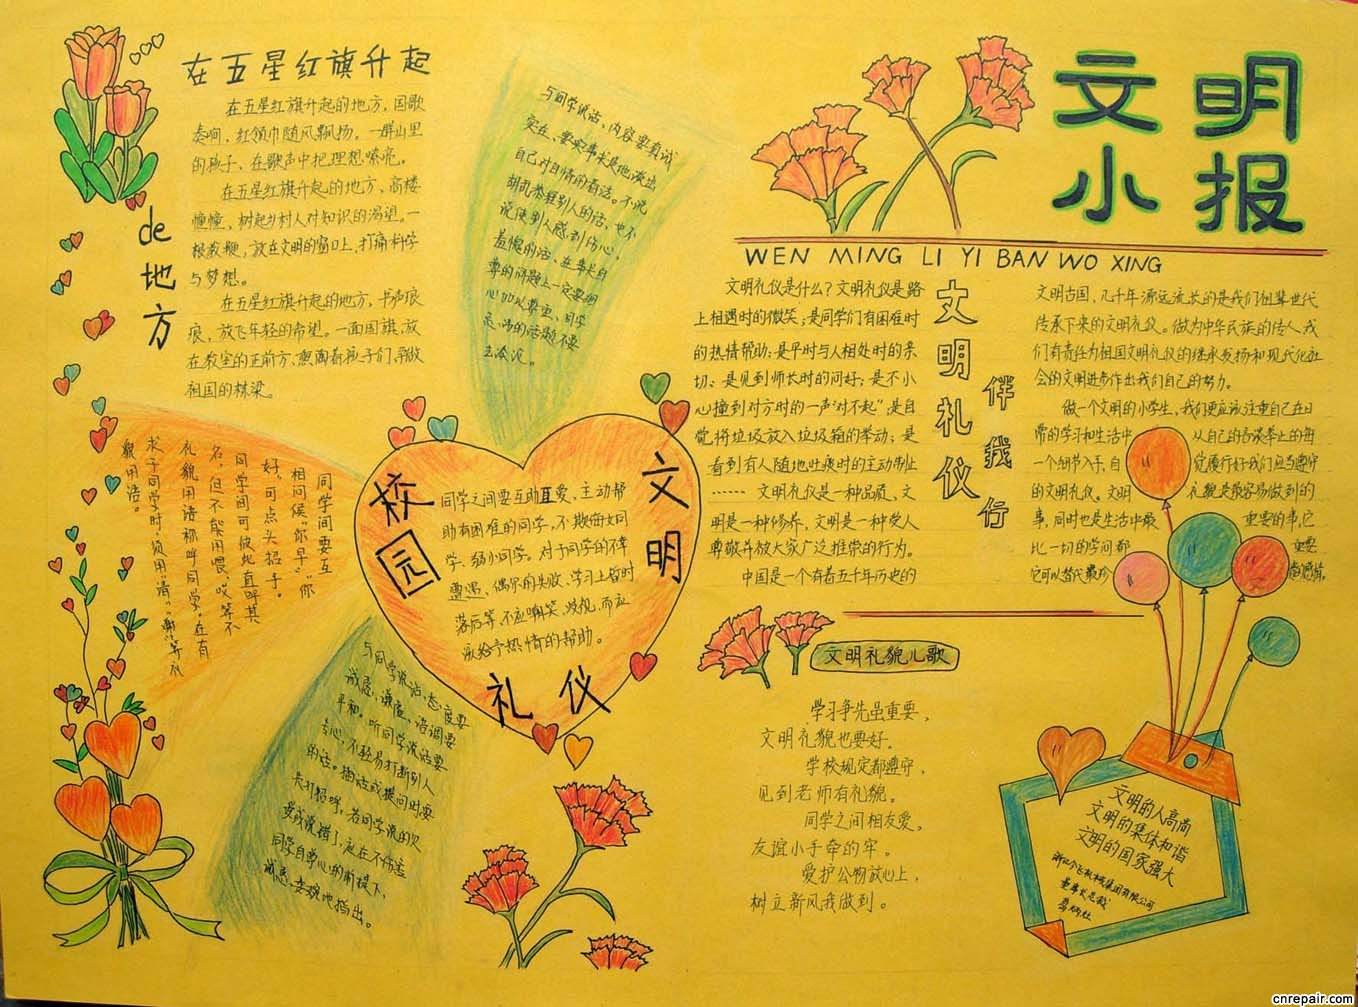 在五星红旗升起
de
地
方
在五星红旗升起的地方,国歌
奏间、红领巾随风飘扬。一群山里
的孩子、在歌声中把理想嘹亮。
在五星红旗升起的地方、高楼
幢幢、树起乡村人对知识的渴望。一
根教鞭,放在文明的窗口上,打痛科学
与梦想。
在五星红旗升起的地方,书声琅
琅,放飞年轻的希望。一面国旗,放
在教室的正前方、熏陶着孩子们、争做
祖国的栋梁。
与同学说话,内容要真诚
实在、要实事求是地谈出
自己对日情的看法。不说
胡乱恭维别人的话,也不
说使别人感到伤心,
羞愧的话、在事关自
尊的问题上一定要细
心加以尊重、同学
去冷说。
同学间要互
相问候“你早”“你
好,可点头招手。
同学间可彼此直呼其
名,但不能用“喂”“哎”等不
礼貌用语称呼同学。在有
求于同学时,须用“请”“谢”等礼
貌用语。
校园
文明
礼仪
同学之间要互助互爱、主动帮
助有困难的同学,不欺侮女同
学、弱小同学。对于同学的不幸
遭遇、偶尔的失败、学习上暂时
落后等,不应嘲笑、歧视,而应
该给予热情的帮助。
与同学说话,态度要
诚恳,谦虚、语调要
平和。听同学说话要
专心,不轻易打断别人
的话。插话或提问时要
先打招呼,若同学说的欠
妥或说错了,应在不伤害
同学自尊心的前提下,
诚恳、委婉地指出。
文明
小报
WEN MING LI YI BAN WO XING
文明礼仪
伴我行
文明礼仪是什么?文明礼仪是路
上相遇时的微笑;是同学们有困难时
的热情帮助;是平时与人相处时的亲
切;是见到师长时的问好;是不小
心撞到对方时的一声“对不起”;是自
觉将垃圾放入垃圾箱的举动;是
看到有人随地吐痰时的主动制止
……文明礼仪是一种品质、文
明是一种修养,文明是一种受人
尊敬并放大家广泛推崇的行为。
中国是一个有着五千年历史的
文明古国,几千年源远流长的是我们祖辈世代
传承下来的文明礼仪。做为中华民族的传人,我
们有责任为祖国文明礼仪的继承发扬和现代化社
会的文明进步作出我们自己的努力。
做一个文明的小学生,我们更应该注重自己在日
常的学习和生活中 从自己的言谈举止的每
一个细节入手,自 觉履行好我们应当遵守
的文明礼仪。文明 礼貌是最容易做到的
事,同时也是生活中最 重要的事,它
比一切的学问都 重要
文明礼貌儿歌
学习争先虽重要,
文明礼貌也要好.
学校规定都遵守,
见到老师有礼貌。
同学之间相友爱,
友谊小手牵的牢。
爱护公物放心上,
树立新风我做到。
文明的人高尚
文明的集体和谐
文明的国家强大
cnrepair.com